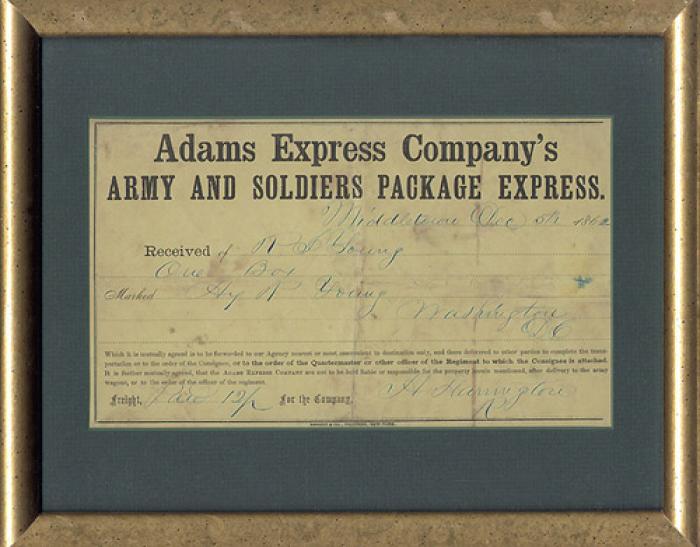 Adams Express Company's
ARMY AND SOLDIERS PACKAGE EXPRESS.
Middletown Dec 5th 1862
Received of R. S. Young
One Box
Marked Hy R Young
Washington
D.C
Which it is mutually agreed is to be forwarded to our Agency nearest or most convenient to destination only, and there delivered to other parties to complete the trans-
portation or to the order of the Consignee, or to the order of the Quartermaster or other officer of the Regiment to which the Consignee is attached.
It is further mutually agreed, that the ADAMS EXPRESS COMPANY are not to be held liable or responsible for the property herein mentioned, after delivery to the army
wagons, or to the order of the officer of the regiment.
Freight, For the Company,
H Harrington